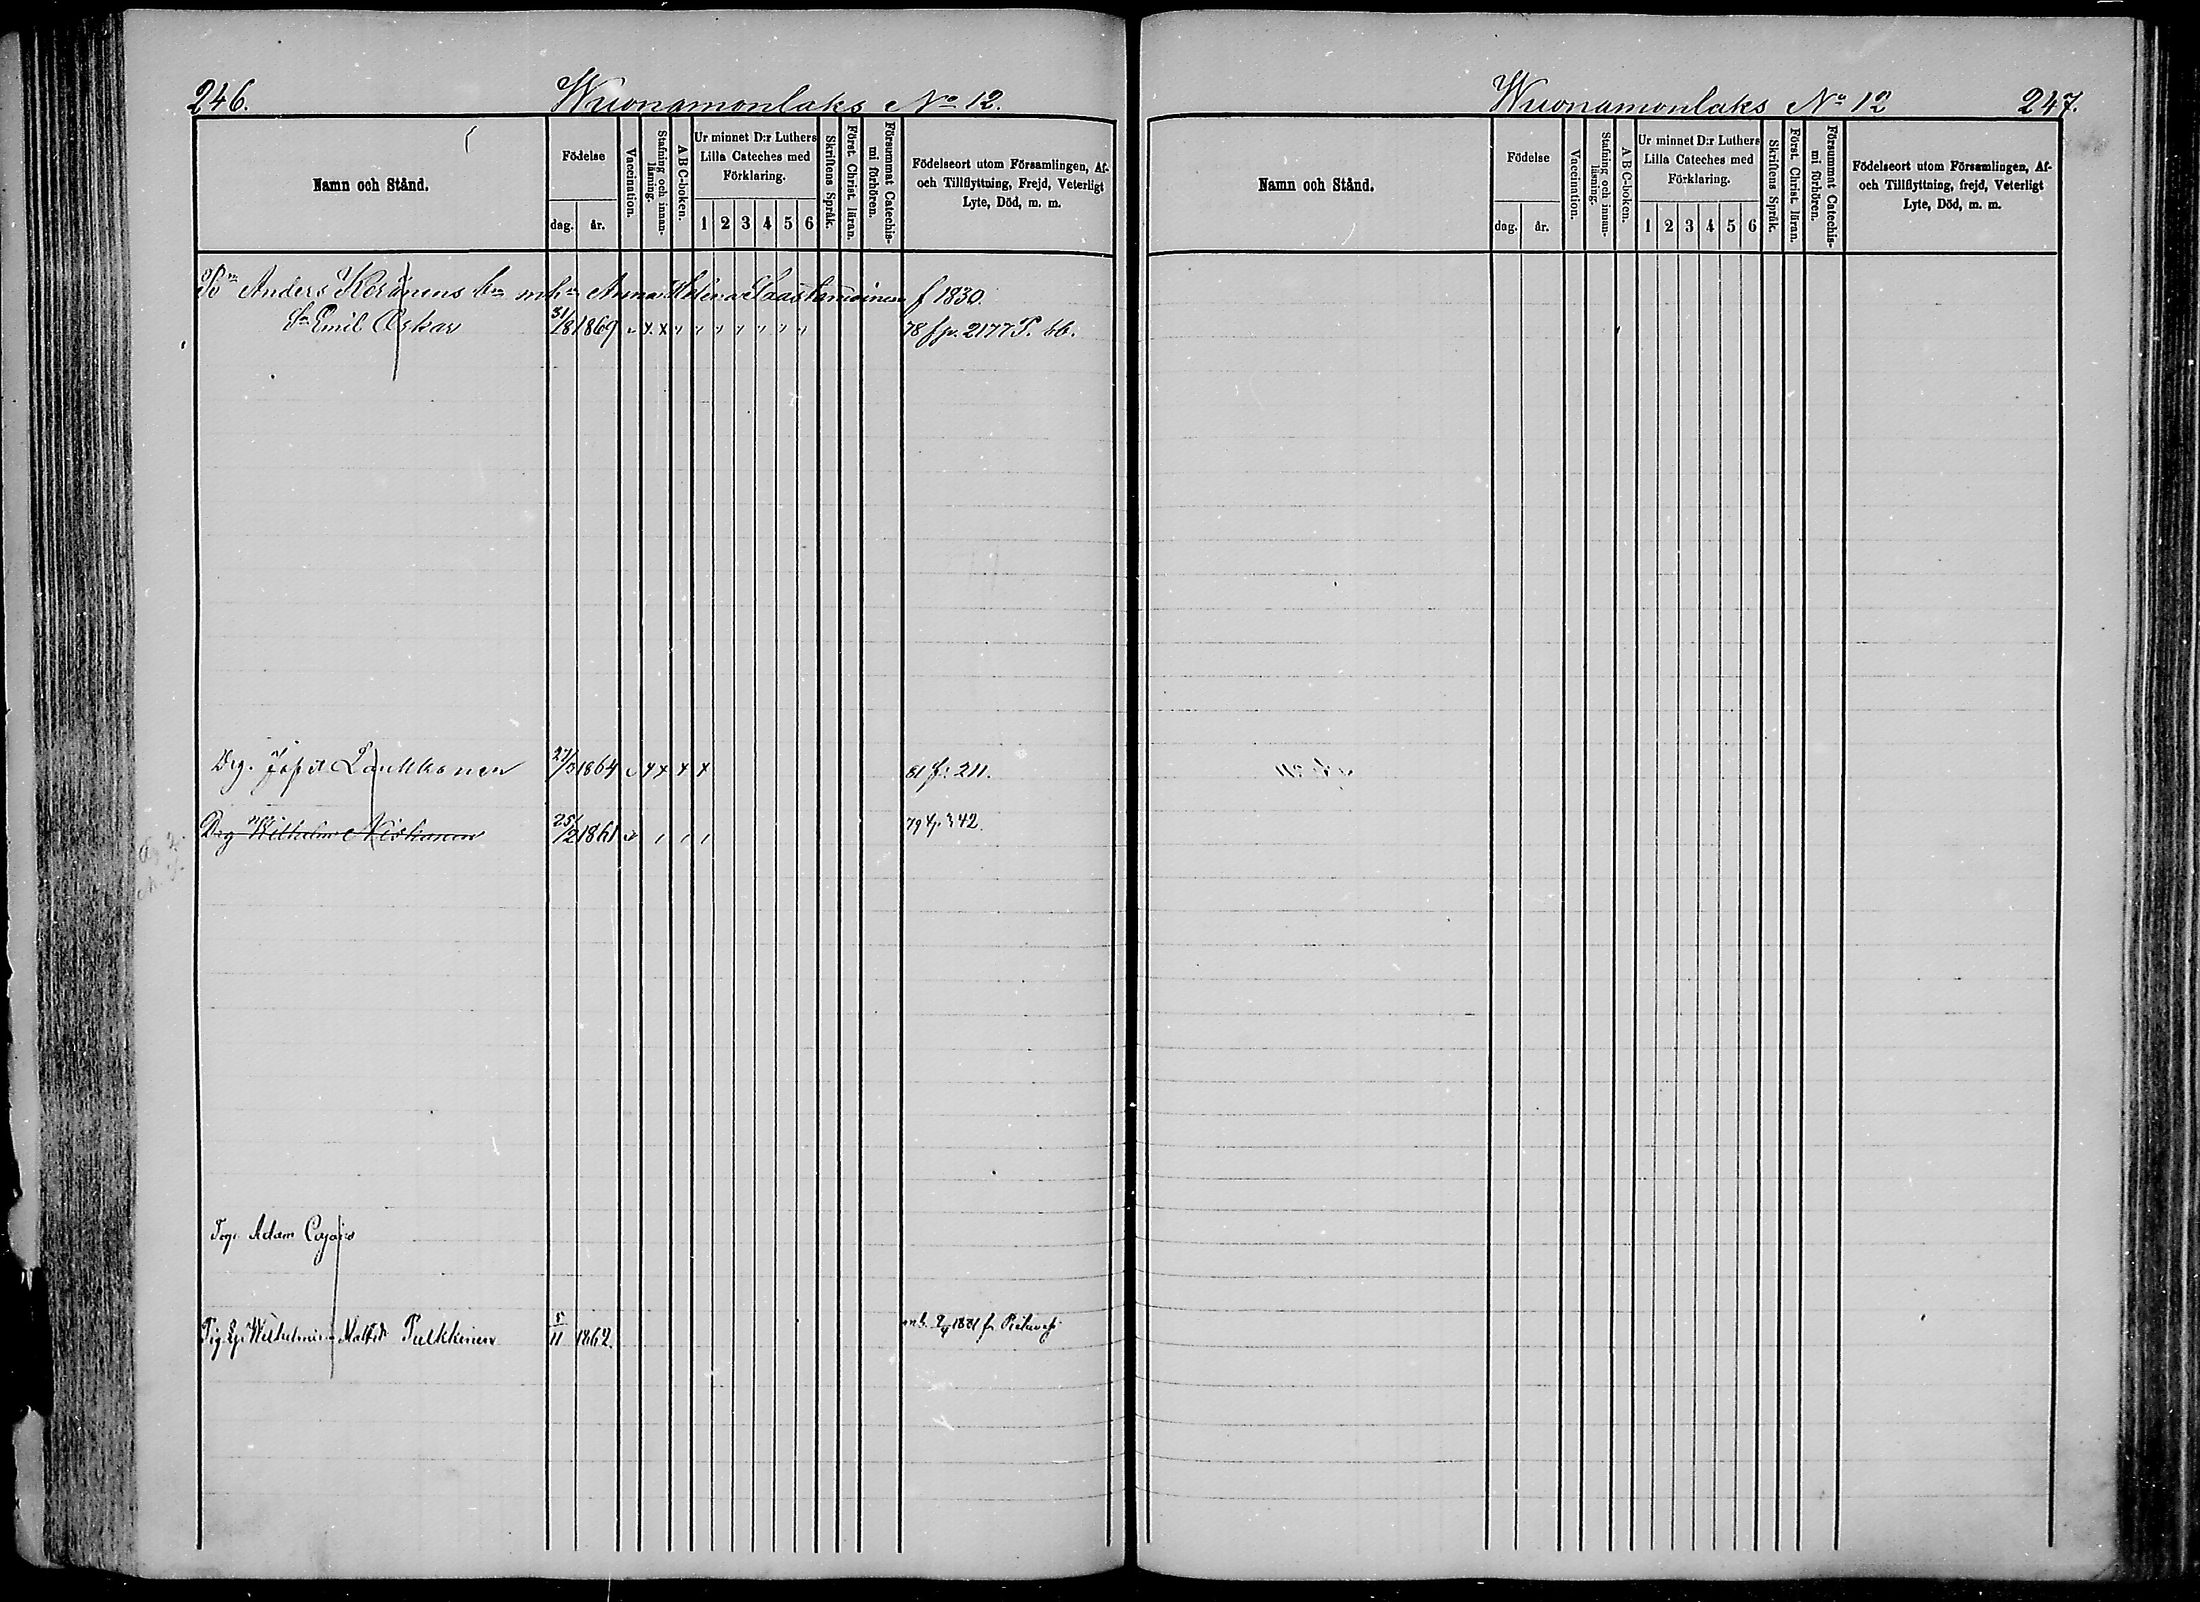 246.
Wuonamonlaks No 12.
Namn och Stånd.
Födelse
dag.
år.
Vaccination.
Stafning och innanläsning.
A B C-boken.
Ur minnet D:r Luthers
Lilla Cateches med
Förklaring.
1 2 3 4 5 6
Skriftens Språk.
Först. Christ. läran.
Försummat Catechismi förhören.
Födelseort utom Församlingen, Af-
och Tillflyttning, Frejd, Veterligt
Lyte, Död, m. m.
Anders Anna Helena Saastamoinen f 1830.
Sn Emil Oskar 31/8 1869 78 f p. 2177
Drg. Laukkanen 1864 x x x 81 f: 211.
Drg Wilhelm Niskanen 25/2 1861 79 342.
Adam
Wilhelmina Pulkkinen 5/11 1862. 1881 fr
Wuonamonlaks No 12
247.
Namn och Stånd.
Födelse
dag.
år.
Vaccination.
Stafning och innanläsning.
A B C-boken.
Ur minnet D:r Luthers
Lilla Cateches med
Förklaring.
1 2 3 4 5 6
Skriftens Språk.
Först. Christ. läran.
Försummat Catechismi förhören.
Födelseort utom Församlingen, Af-
och Tillflyttning, frejd, Veterligt
Lyte, Död, m. m.